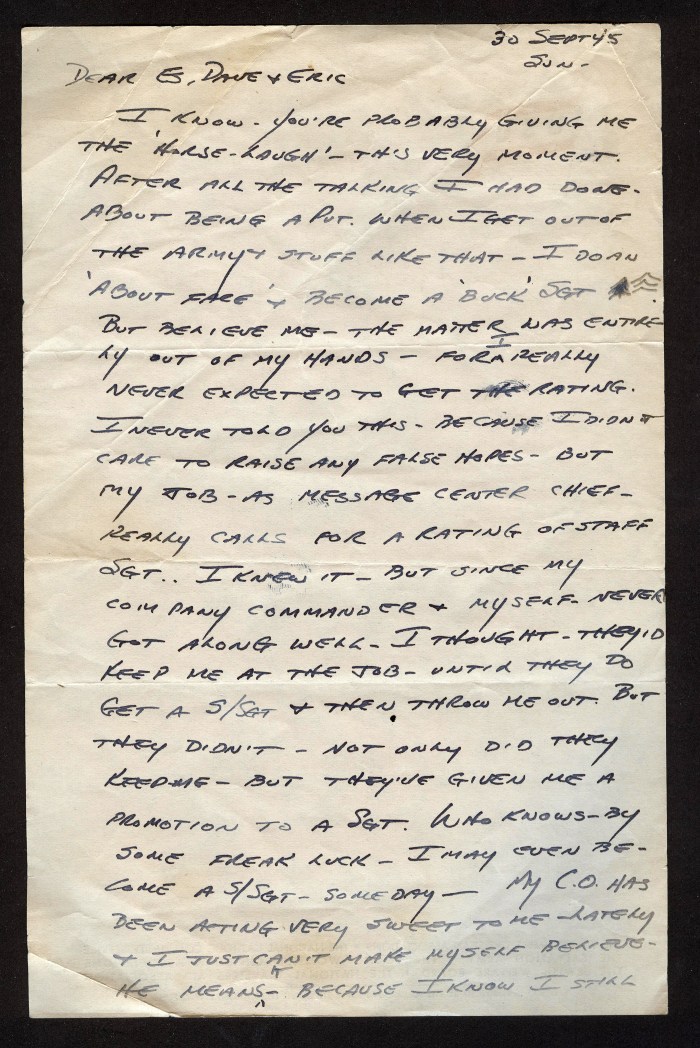 30 SEPT45
SUN-
DEAR ES, DAVE & ERIC
I KNOW - YOU'RE PROBABLY GIVING ME
THE 'HORSE-LAUGH' - THIS VERY MOMENT.
AFTER ALL THE TALKING I HAD DONE-
ABOUT BEING A PVT. WHEN I GET OUT OF
THE ARMY & STUFF LIKE THAT - I DO AN
'ABOUT FACE' & BECOME A 'BUCK' SGT
BUT BELIEVE ME - THE MATTER WAS ENTIRE-
LY OUT OF MY HANDS - FOR I REALLY
NEVER EXPECTED TO GET THE RATING.
I NEVER TOLD YOU THIS - BECAUSE I DIDN'T
CARE TO RAISE ANY FALSE HOPES - BUT
MY JOB - AS MESSAGE CENTER CHIEF-
REALLY CALLS FOR A RATING OF STAFF
SGT.. I KNEW IT - BUT SINCE MY
COMPANY COMMANDER & MYSELF - NEVER
GOT ALONG WELL - I THOUGHT - THEY'D
KEEP ME AT THE JOB - UNTIL THEY DO
GET A S/SGT & THEN THROW ME OUT. BUT
THEY DIDN'T - NOT ONLY DID THEY
KEEP ME - BUT THEY'VE GIVEN ME A
PROMOTION TO A SGT. WHO KNOWS - BY
SOME FREAK LUCK - I MAY EVEN BE-
COME A S/SGT - SOMEDAY - MY C.O. HAS
BEEN ACTING VERY SWEET TO ME - LATELY
& I JUST CAN'T MAKE MYSELF BELIEVE-
HE MEANS - BECAUSE I KNOW I STILL